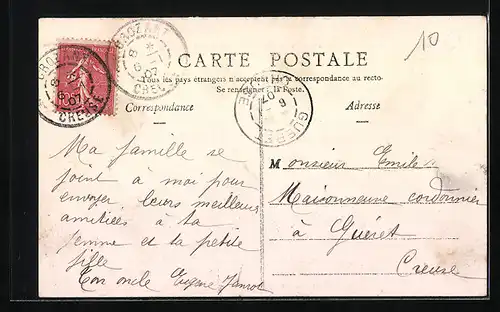 10
CARTE POSTALE
Tous les pays étrangers n'acceptent pas la correspondance au recto.
Se renseigner à la Poste.
Correspondance
Adresse
CROZANT
CREUSE
GUERET
CREUSE
Ma famille se
joint à moi pour
envoyer leurs meilleurs
amitiées à ta
femme et ta petite
fille
Ton oncle Eugène
Monsieur Emile
Maisonneuve cordonnier
à Guéret
Creuse